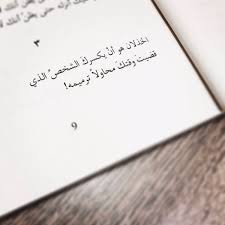 ٣
الخذلان هو أنْ يكسركَ الشخصُ الذي
قضيتَ وقتكَ محاولاً ترميمه!
9